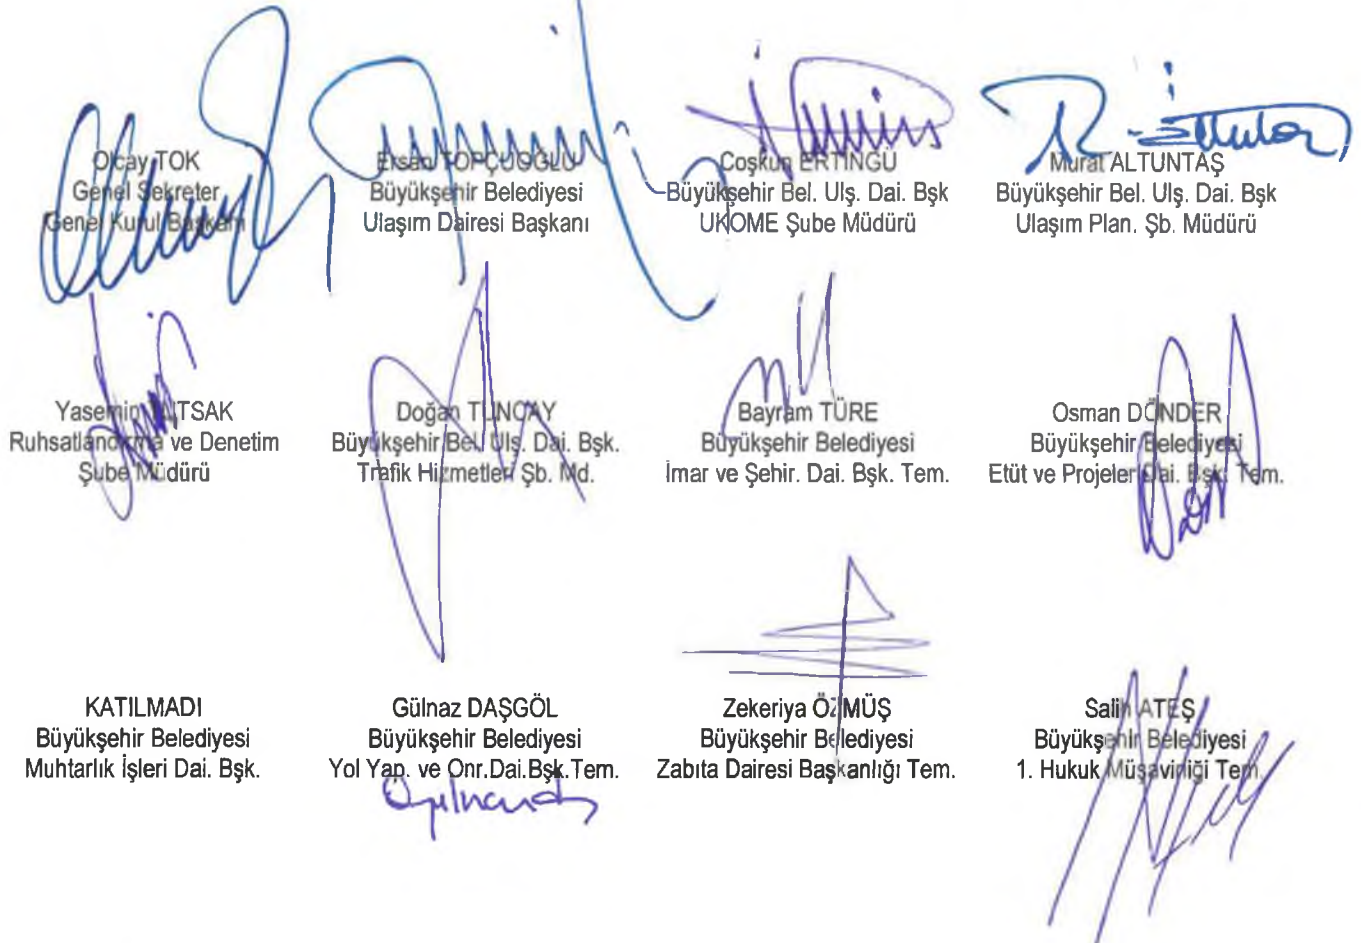 Olcay TOK
Genel Sekreter
Genel Kurul Başkanı
Ersan TOPÇUOĞLU
Büyükşehir Belediyesi
Ulaşım Dairesi Başkanı
Coşkun ERTİNGÜ
Büyükşehir Bel. Ulş. Dai. Bşk
UKOME Şube Müdürü
Murat ALTUNTAŞ
Büyükşehir Bel. Ulş. Dai. Bşk
Ulaşım Plan. Şb. Müdürü
Yasemin
Ruhsatlandırma ve Denetim
Şube Müdürü
Doğan TUNCAY
Büyükşehir Bel. Ulş. Dai. Bşk.
Trafik Hizmetleri Şb. Md.
Bayram TÜRE
Büyükşehir Belediyesi
İmar ve Şehir. Dai. Bşk. Tem.
Osman DÖNDER
Büyükşehir Belediyesi
Etüt ve Projeler Dai. Bşk. Tem.
KATILMADI
Büyükşehir Belediyesi
Muhtarlık İşleri Dai. Bşk.
Gülnaz DAŞGÖL
Büyükşehir Belediyesi
Yol Yap. ve Onr.Dai.Bşk.Tem.
Zekeriya ÖZMÜŞ
Büyükşehir Belediyesi
Zabıta Dairesi Başkanlığı Tem.
Salih ATEŞ
Büyükşehir Belediyesi
1. Hukuk Müşavirliği Tem.